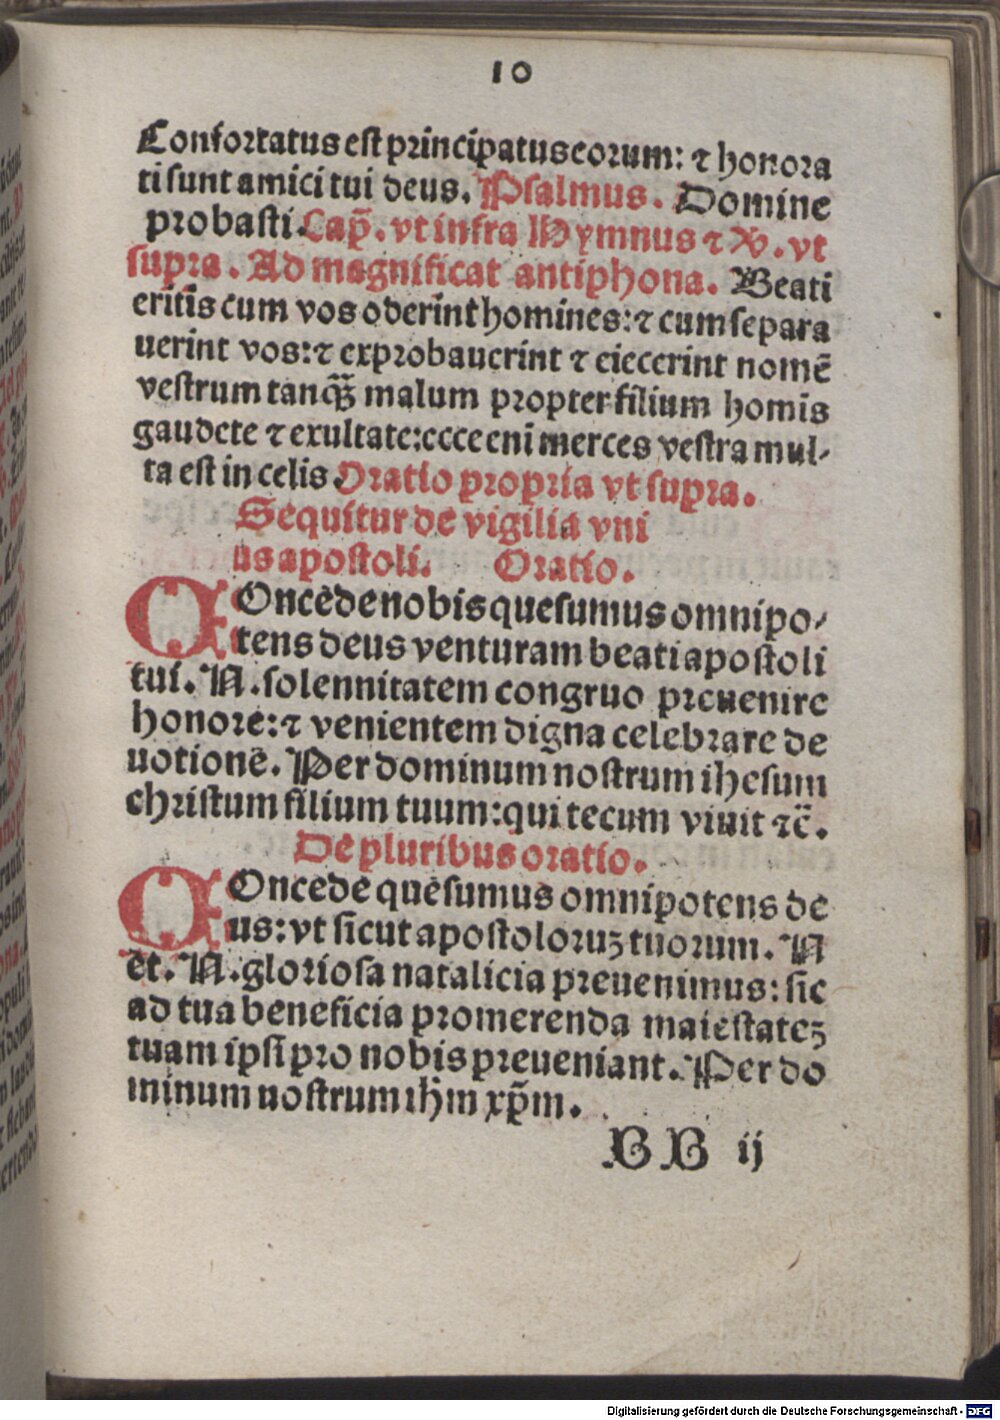 10
Confortatus est principatus eorum: ⁊ honora
ti sunt amici tui deus. Psalmus. Domine
probasti. Cap̃. vt infra Hymnus ⁊ V. vt
supra. Ad magnificat antiphona. Beati
eritis cum vos oderint homines: ⁊ cum separa
uerint vos: ⁊ exprobauerint ⁊ eiecerint nomē
vestrum tanq̄ȝ malum propter filium homis
gaudete ⁊ exultate: ecce eni merces vestra mul-
ta est in celis Oratio propria vt supra.
Sequitur de vigilia vni
us apostoli. Oratio.
COncede nobis quesumus omnipo-
tens deus venturam beati apostoli
tui. N. solennitatem congruo preuenire
honore: ⁊ venientem digna celebrare de
uotionē. Per dominum nostrum ihesum
christum filium tuum: qui tecum viuit ⁊c̄.
De pluribus oratio.
COncede quesumus omnipotens de
us: vt sicut apostoloruȝ tuorum. N
et. N. gloriosa natalicia preuenimus: sic
ad tua beneficia promerenda maiestateȝ
tuam ipsi pro nobis preueniant. Per do
minum nostrum ihm̄ xp̄m.
BB ij
Digitalisierung gefördert durch die Deutsche Forschungsgemeinschaft - DFG